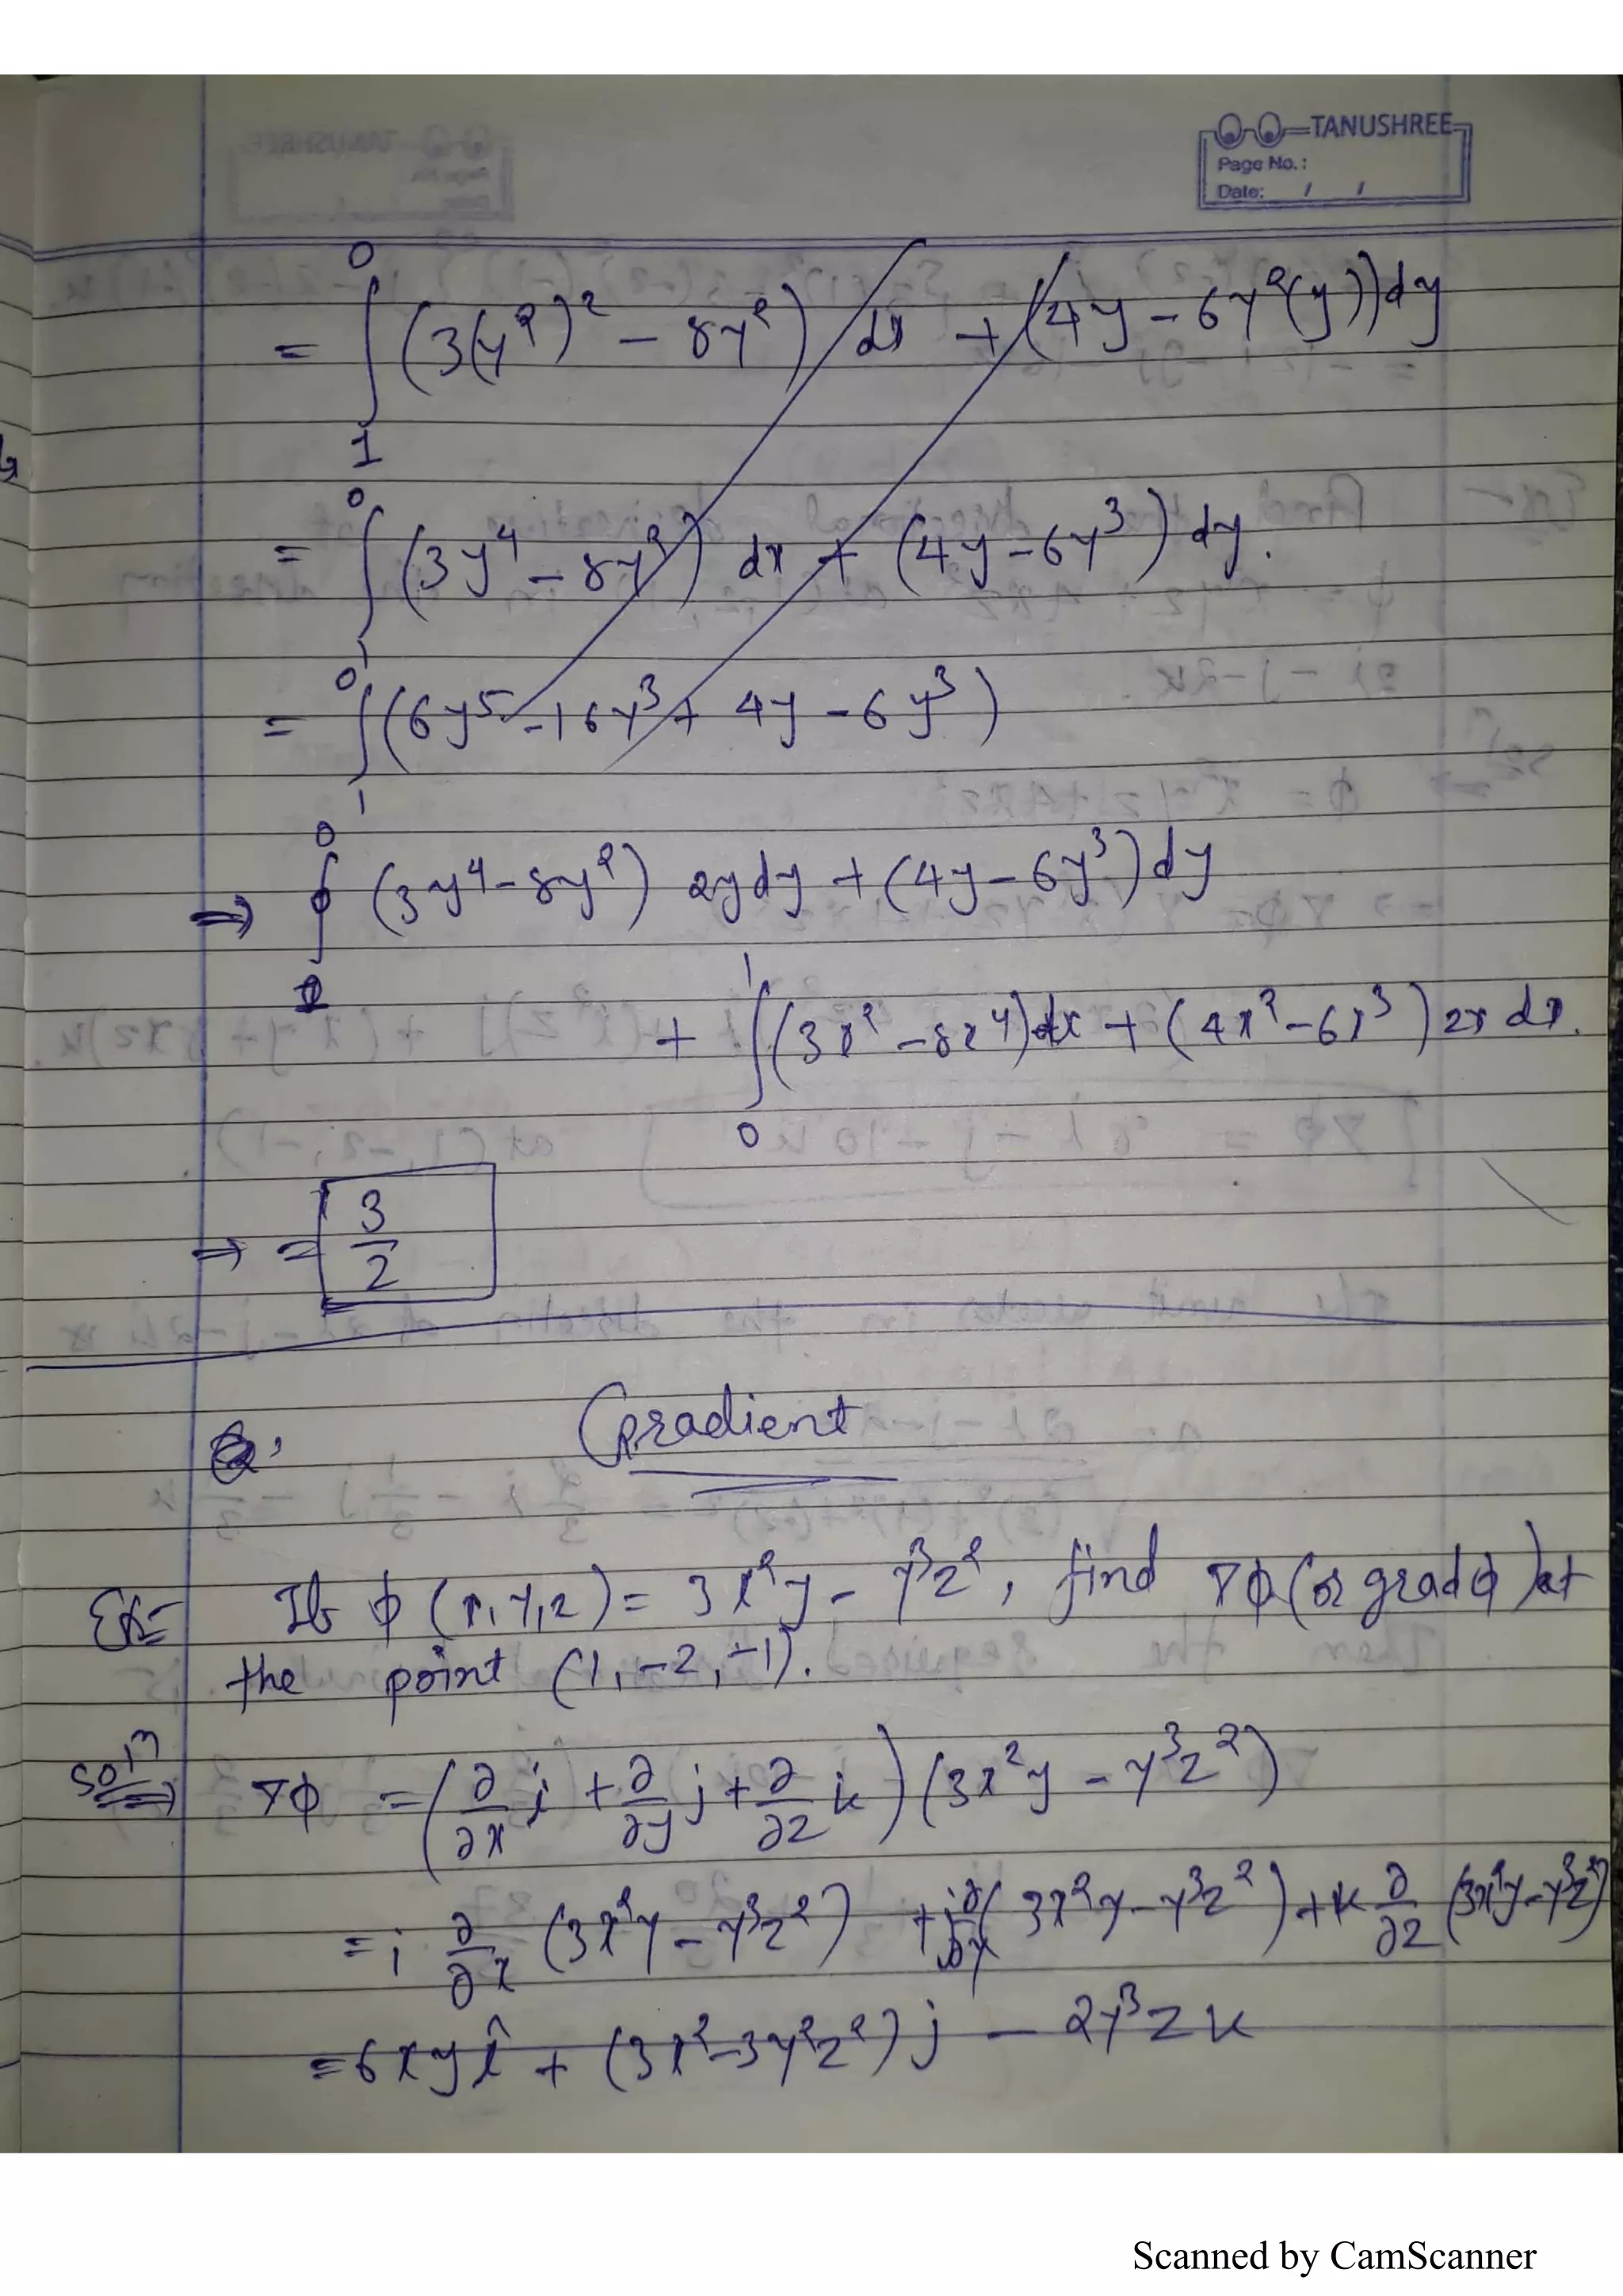 TANUSHREE
Page No.:
Date: / /
= ∫₁⁰ (3(y²)² - 8y²) dx + (4y - 6y²(y)) dy
= ∫₁⁰ (3y⁴ - 8y²) dx + (4y - 6y³) dy.
= ∫₁⁰ (6y⁵ - 16y³ + 4y - 6y³)
⇒ ∮⁰ (3y⁴ - 8y²) 2y dy + (4y - 6y³) dy
+ ∫₀¹ (3x² - 8x⁴) dx + (4x² - 6x³) 2x dx.
→ = 3/2
Gradient
Ex- If ϕ (x, y, z) = 3x²y - y³z², find ∇ϕ (or grad ϕ) at
the point (1, -2, -1).
Solⁿ ⇒ ∇ϕ = (∂/∂x i + ∂/∂y j + ∂/∂z k) (3x²y - y³z²)
= i ∂/∂x (3x²y - y³z²) + j ∂/∂y (3x²y - y³z²) + k ∂/∂z (3x²y - y³z²)
= 6xy î + (3x² - 3y²z²) j - 2y³z k
Scanned by CamScanner